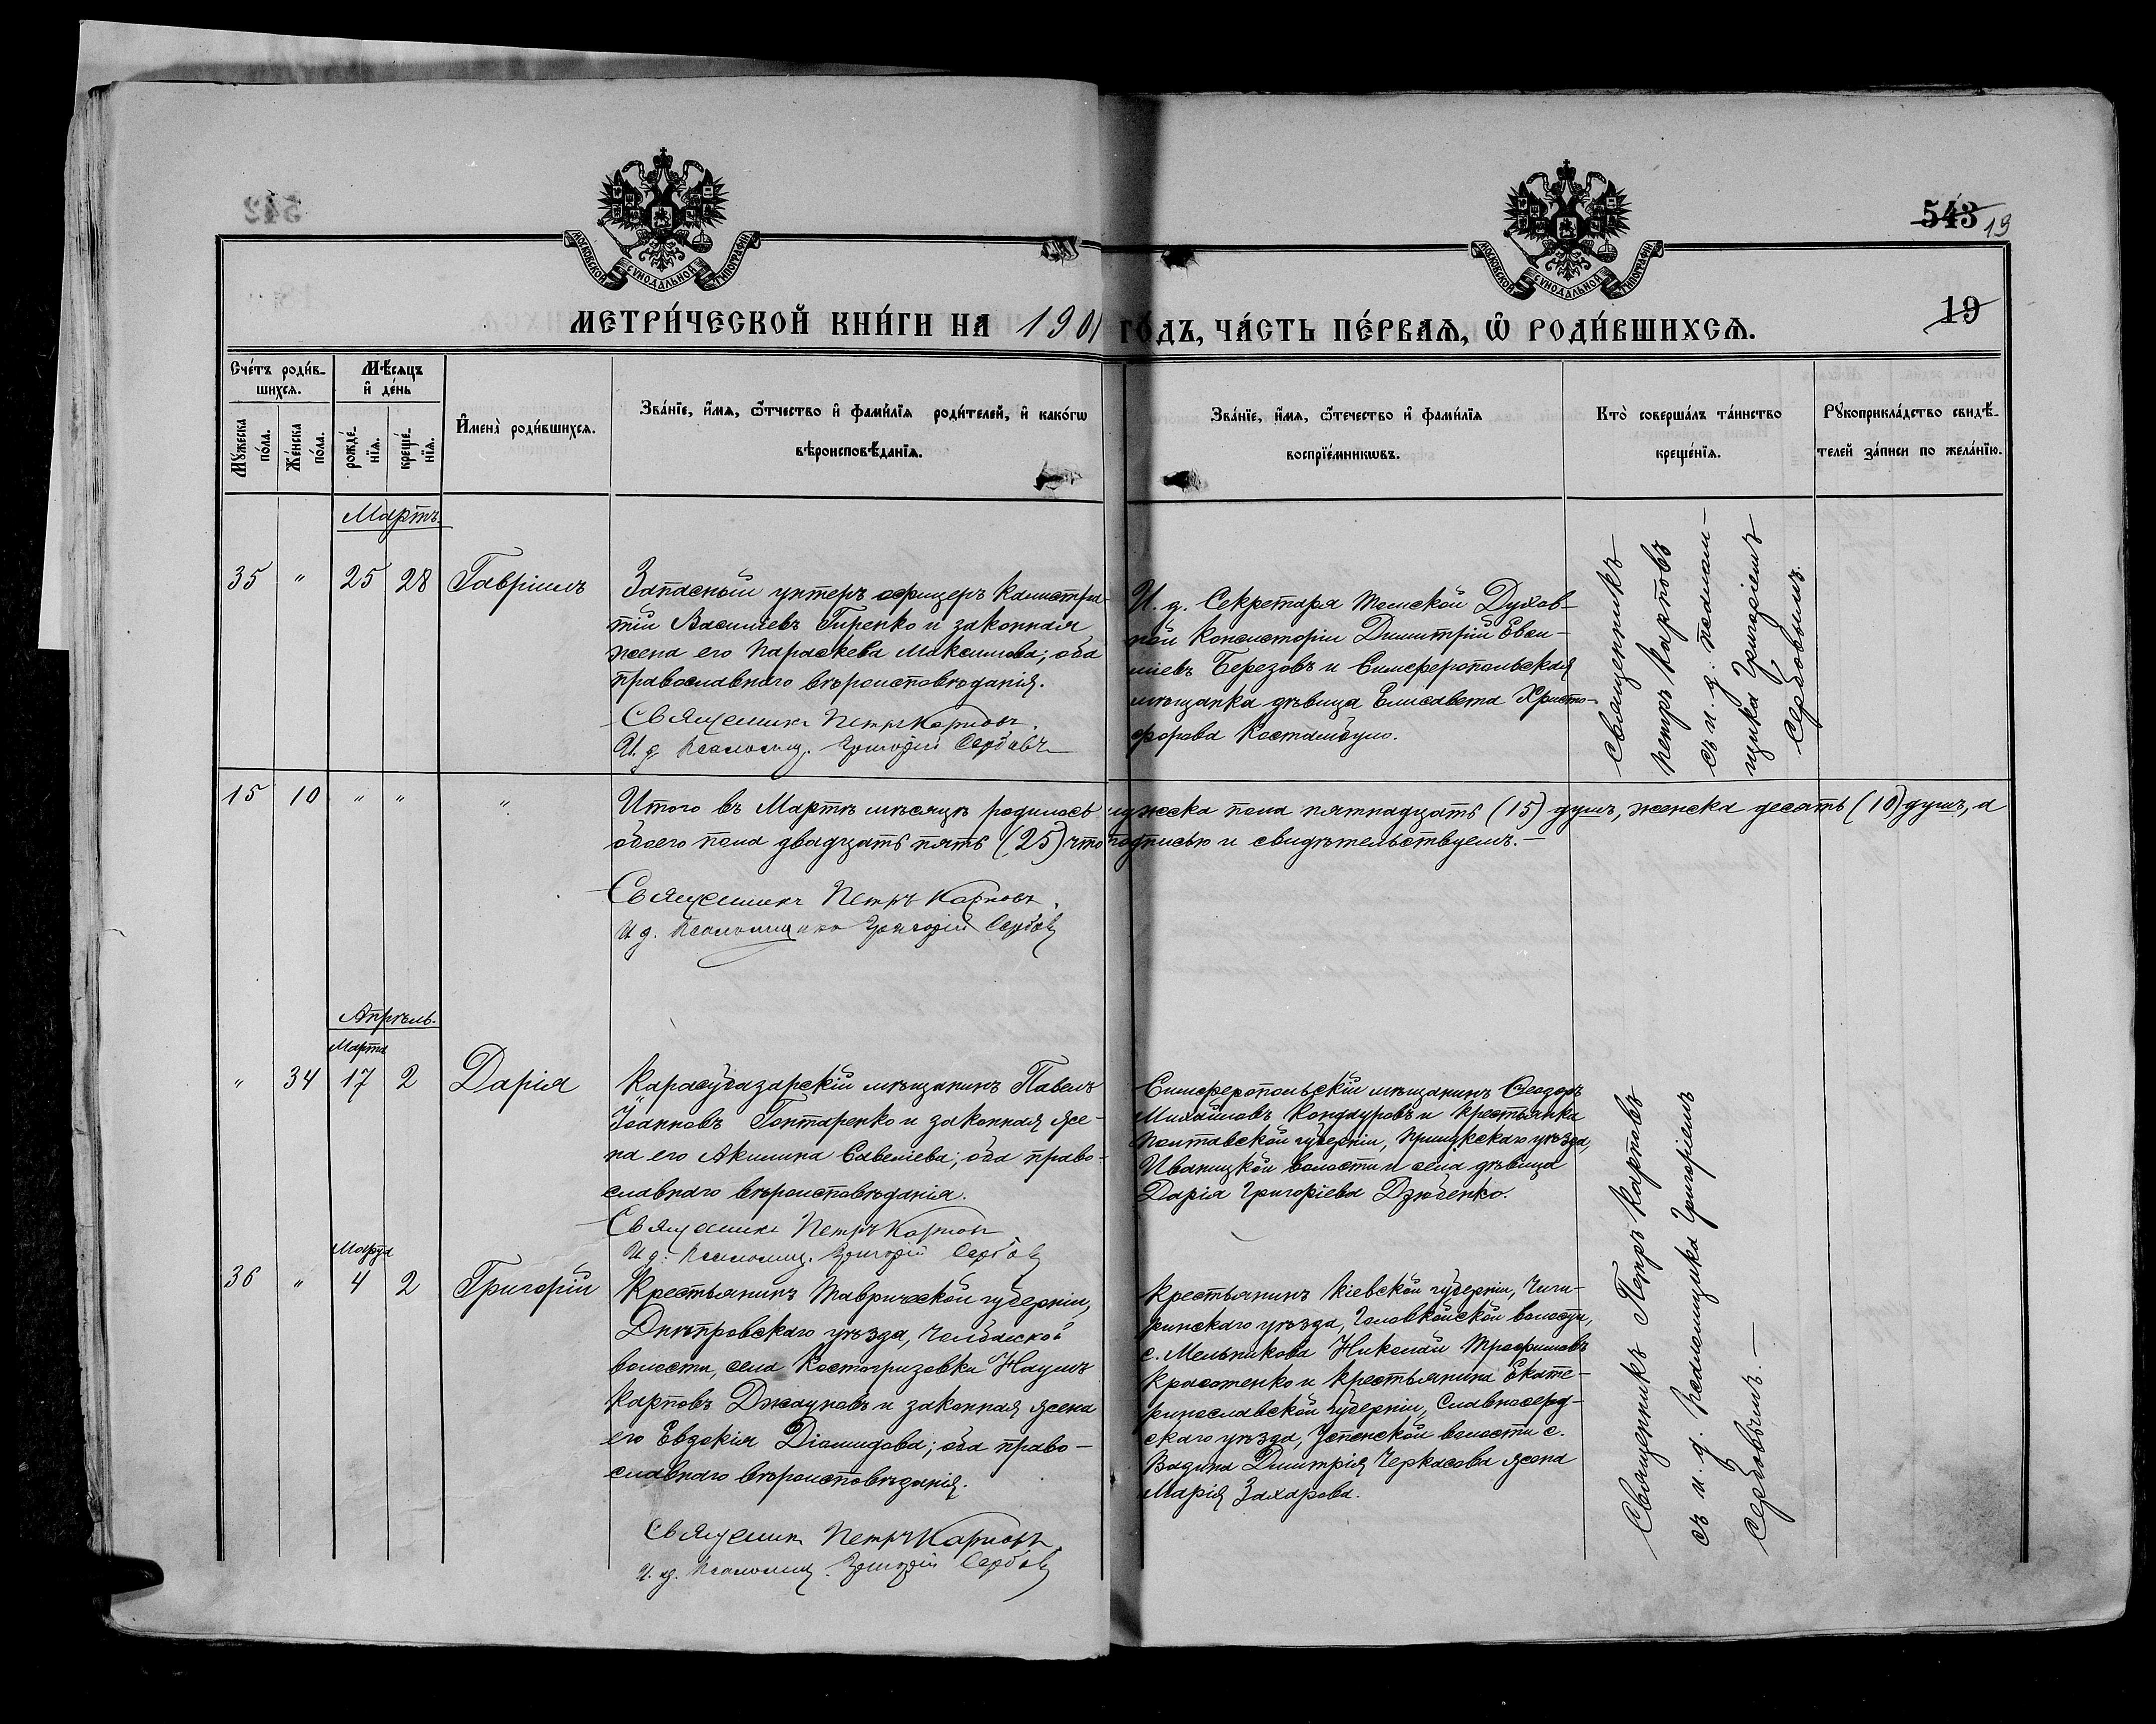 МОСКОВСКОЙ СУНОДАЛЬНОЙ ТИПОГРАФІИ
МОСКОВСКОЙ СУНОДАЛЬНОЙ ТИПОГРАФІИ
542
543 19
19
МЕТРИ́ЧЕСКОЙ КНИ́ГИ НА 1901 ГО́ДЪ, ЧА́СТЬ ПЕ́РВАѦ, Ѽ РОДИ́ВШИХСѦ.
Сче́тъ роди́в-
шихсѧ.
Мѣ́сѧцъ
и҆ де́нь
Мꙋ́жеска по́ла.
Же́нска по́ла.
рожде́-нїѧ.
креще́-нїѧ.
И҆мена̀ роди́вшихсѧ.
Зва́нїе, и҆́мѧ, ѻ҆́тчество и҆ фами́лїѧ роди́телей, и҆ како́гѡ
вѣроисповѣ́данїѧ.
Зва́нїе, и҆́мѧ, ѻ҆те́чество и҆ фами́лїѧ
воспрїе́мникѡвъ.
Кто̀ соверша́лъ та́инство
креще́нїѧ.
Рꙋкоприкла́дство свидѣ́-
телей за́писи по жела́нїю.
Мартъ.
35 " 25 28 Гавріилъ
Запасный унтеръ офицеръ Калистра-
тій Васильевъ Гиренко и законная
жена его Параскева Максимова; оба
православнаго вѣроисповѣданія.
Священникъ Петръ Карповъ.
И. д. Псаломщ. Григорій Сербовъ
И. д. Секретаря Томской Духов-
ной Консисторіи Димитрій Евси-
міевъ Березовъ и Симферопольская
мѣщанка дѣвица Елисавета Христо-
форова Костамбуло.
Священникъ
Петръ Карповъ
съ и. д. псалом-
щика Григоріемъ
Сербовымъ.
15 10 " " "
Итого въ Мартѣ мѣсяцѣ родилось мужеска пола пятнадцать (15) душъ, женска десять (10) душъ, а
обоего пола двадцать пять (25) что подписью и свидѣтельствуемъ.—
Священникъ Петръ Карповъ.
И д. Псаломщика Григорій Сербовъ
Апрѣль.
Марта
" 34 17 2 Дарія
Карасубазарскій мѣщанинъ Павелъ
Іоанновъ Гонтаренко и законная же-
на его Акилина Савельева; оба право-
славнаго вѣроисповѣданія.
Священникъ Петръ Карповъ
И д. Псаломщ. Григорій Сербовъ
Симферопольскій мѣщанинъ Ѳеодоръ
Михайловъ Кондауровъ и крестьянка
Полтавской губерніи, Прилукскаго уѣзда,
Иваницкой волости и села дѣвица
Дарія Григоріева Дзюбенко.
Марта
36 " 4 2 Григорій
Крестьянинъ Таврической губерніи,
Днѣпровскаго уѣзда, Чалбасской
волости, села Костогризовки Наумъ
Карповъ Джауновъ и законная жена
его Евдокія Діомидова; оба право-
славнаго вѣроисповѣданія.
Священникъ Петръ Карповъ
И. д. Псаломщ. Григорій Сербовъ
Крестьянинъ Кіевской губерніи, Чиги-
ринскаго уѣзда, Головковской волости,
с. Мельникова Николай Трофимовъ
Красотенко и крестьянина Екате-
ринославской губерніи, Славяносерб-
скаго уѣзда, Успенской волости с.
Вадина Дмитрія Черкасова жена
Марія Захарова.
Священникъ Петръ Карповъ
съ и. д. Псаломщика Григоріемъ
Сербовымъ.—